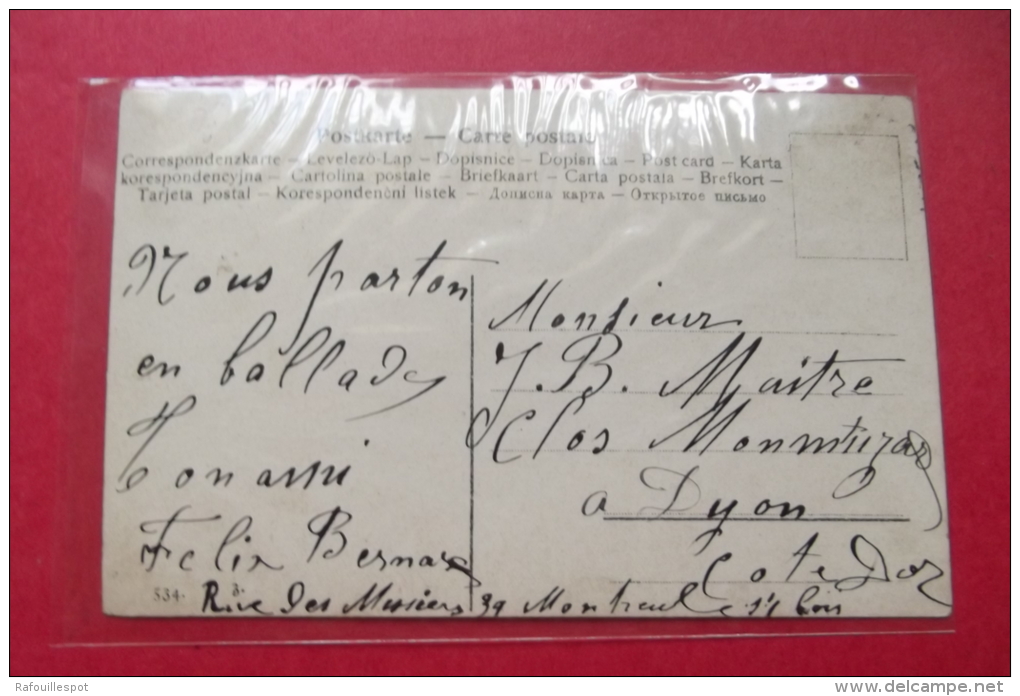 Postkarte — Carte postale
Correspondenzkarte – Levelező-Lap – Dopisnice – Dopisnica – Post card – Karta
korespondencyjna – Cartolina postale – Briefkaart – Carta postala – Brefkort –
Tarjeta postal – Korespondenční listek – Дописна карта – Открытое письмо
Nous parton
en ballade
Ton ami
Felix Bernard
Monsieur
J. B. Maitre
Clos
a Dyon
Cote Dor
534.
3. Rue Des 39 Montreuil s/s bois
Rafouillespot
www.delcampe.net